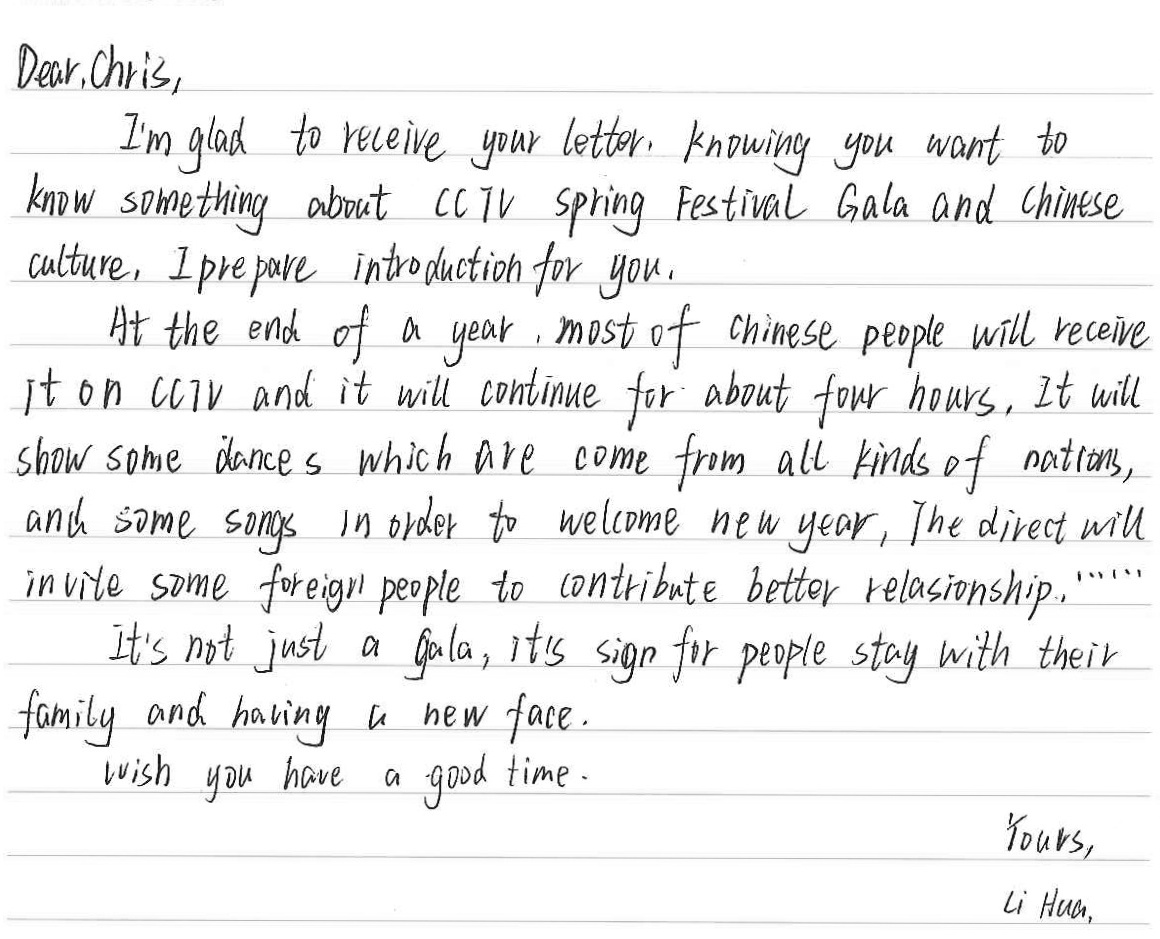 Dear, Chris,
I'm glad to receive your letter. Knowing you want to
know something about CCTV Spring Festival Gala and Chinese
culture, I prepare introduction for you.
At the end of a year, most of Chinese people will receive
it on CCTV and it will continue for about four hours, It will
show some dances which are come from all kinds of nations,
and some songs in order to welcome new year, The direct will
invite some foreign people to contribute better relasionship. ......
It's not just a gala, it's sign for people stay with their
family and having a new face.
Wish you have a good time.
Yours,
Li Hua,